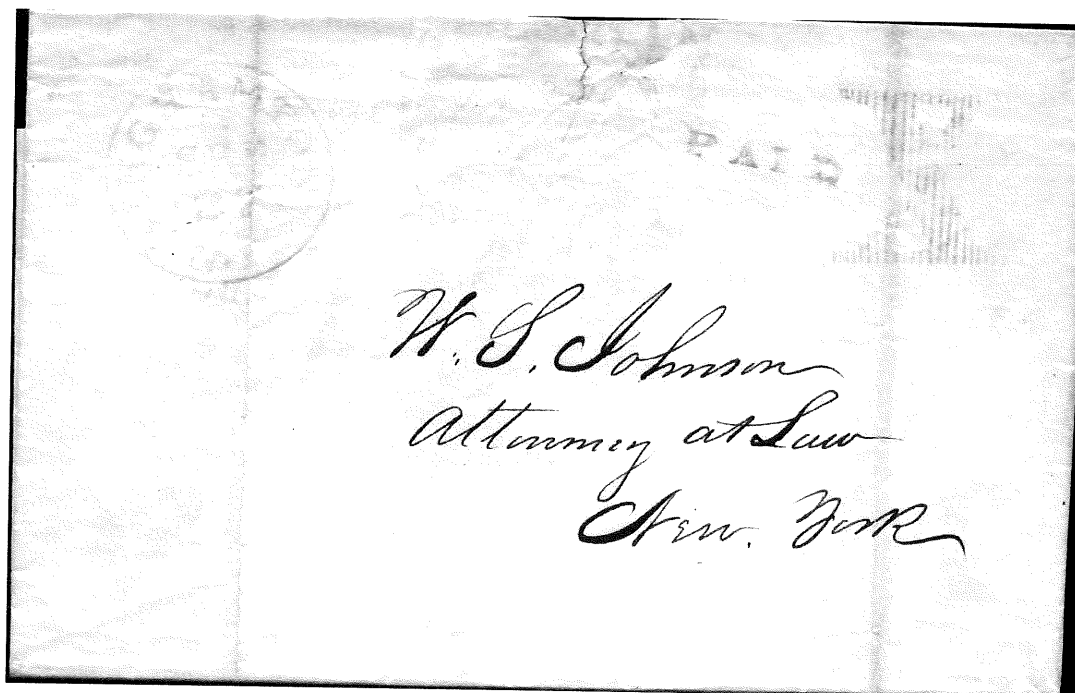 PAID
W. S. Johnson
Attorney at Law
New. York